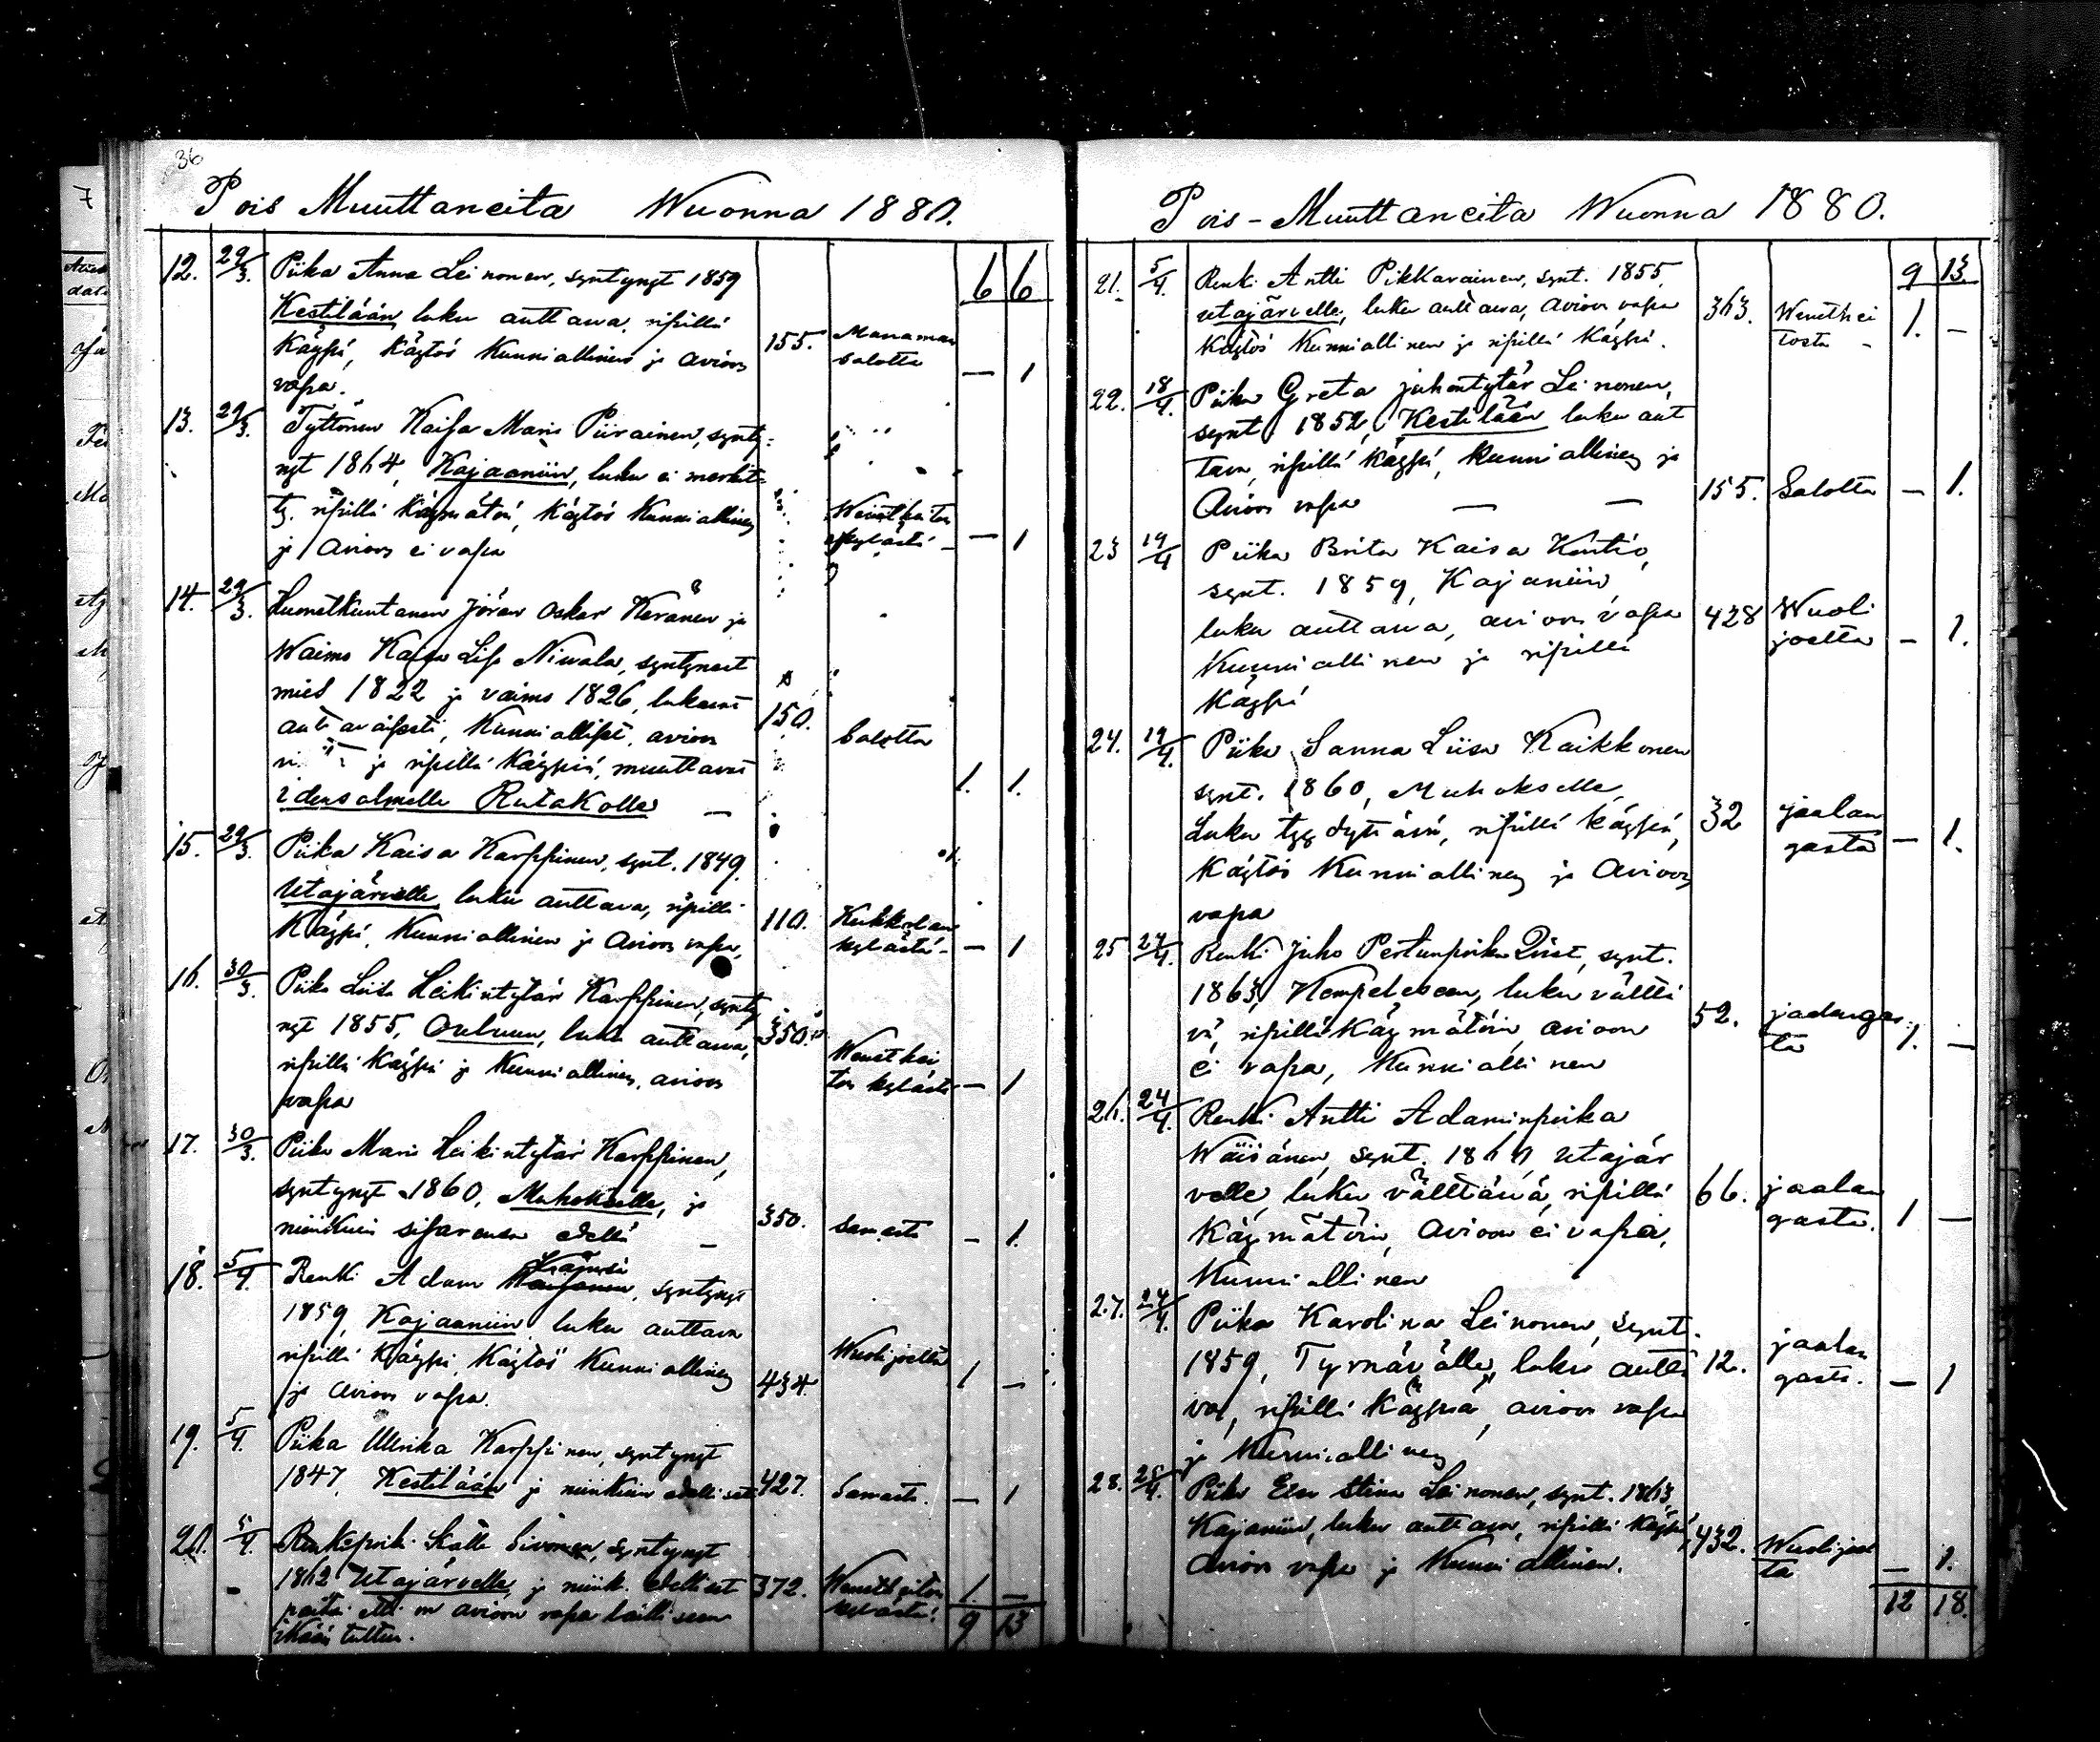 36
Pois Muuttaneita Wuonna 1880.
6 6
12. 29/3. Piika Anna Leinonen, syntynyt 1859
Kestilään, luku auttawa, ripillä
käypä, käytös kunniallinen ja avioon 155. Manaman
vapa. salolta — 1
13. 29/3. Tyttönen Kaisa Maria Piirainen, synty-
nyt 1864, Kajaaniin, luku ei merkit-
ty. ripillä käymätön, käytös kunniallinen
ja avioon ei vapa kylästä — 1
14. 29/3. Huonetkuntanen Jöran Oskar Keränen ja
Waimo Kaisa Lisa Niwala, syntyneet
mies 1822 ja vaimo 1826, lukevat
auttavaisesti, kunnialliset, avioon 150. Salolta
ja ripillä käypiä, muuttavat
Idensalmelle Rutakolle — 1. 1.
15. 29/3. Piika Kaisa Karppinen, synt. 1849.
Utajärvelle luku auttava, ripillä
käypä, kunniallinen ja avioon vapa, 110. Kukkolan
kylästä — 1
16. 30/3. Piika Liisa Heikintytär Karppinen, synty
nyt 1855, Ouluun, luku auttawa, 350.
ripillä käypä ja kunniallinen, avioon Wenethei
vapa ton kylästä — 1
17. 30/3. Piika Maria Heikintytär Karppinen,
syntynyt 1860. Muhokselle, ja
niinkuin sisarensa edellä — 350. samasta — 1.
18. 5/4. Renki Adam Karjonen, syntynyt
1859, Kajaaniin luku auttava
ripillä käypä, käytös kunniallinen Wuolijoelta
ja avioon vapa. 434 1 —
19. 5/4. Piika Ulrika Karppinen, syntynyt
1847, Kestilään ja niinkuin edelliset 427. Samasta. — 1
20. 5/4. Renkipoika Kalle Sivonen, syntynyt
1862 Utajärvelle ja niink. edelliset 372. Wenetheiton 1. —
paitsi että on avioon vapa lailliseen kylästä.
ikään tultua. 9 13
Pois-Muuttaneita Wuonna 1880.
9 13.
21. 5/4. Renki Antti Pikkarainen, synt. 1855,
Utajärvelle, luku auttawa, avioon vapa 363. Wenethei
käytös kunniallinen ja ripillä käypä. tosta 1. —
22. 18/4. Piika Greta Juhontytär Leinonen,
synt. 1852, Kestilään luku aut
tava, ripillä käypä, kunniallinen ja
Avioon vapa — — 155. Salolta — 1.
23 19/4 Piika Brita Kaisa Kontio,
synt. 1859, Kajaniin
luku auttawa, avioon vapa 428 Wuoli
kunniallinen ja ripillä joelta — 1.
käypä
24. 19/4. Piika Sanna Liisa Kaikkonen
synt. 1860, Muhokselle,
Luku tyydyttävä, ripillä käypä, 32 jaalan
käytös kunniallinen ja Avioon gasta — 1.
vapa
25 24/4. Renki Juho Pertunpoika Qvist, synt.
1863, Kempeleseen, luku vältti
vä, ripillä käymätöin, avioon 52. jaalangas
ei vapa, kunniallinen ta 1. —
26. 24/4. Renki Antti Adaminpoika
Wäisänen, synt. 1860, Utajär
velle, luku välttävä, ripillä 66. jaalan
käymätöin, Avioon ei vapa, gasta. 1 —
kunniallinen
27. 24/4. Piika Karolina Leinonen, synt.
1859, Tyrnävälle, luku autta 12. jaalan
va, ripillä käypä, avioon vapa gasta. — 1
ja kunniallinen
28. 25/4. Piika Eeva Stina Leinonen, synt. 1863,
Kajaniin, luku auttava, ripillä käypä, 432. Wuolijoel
avioon vapa ja kunniallinen. ta — 1.
12 18.